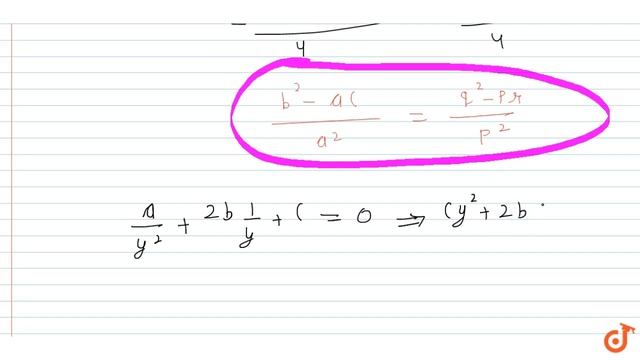 4 4
b² - ac / a² = q² - pr / p²
a / y² + 2b 1 / y + c = 0 ⇒ cy² + 2b
d